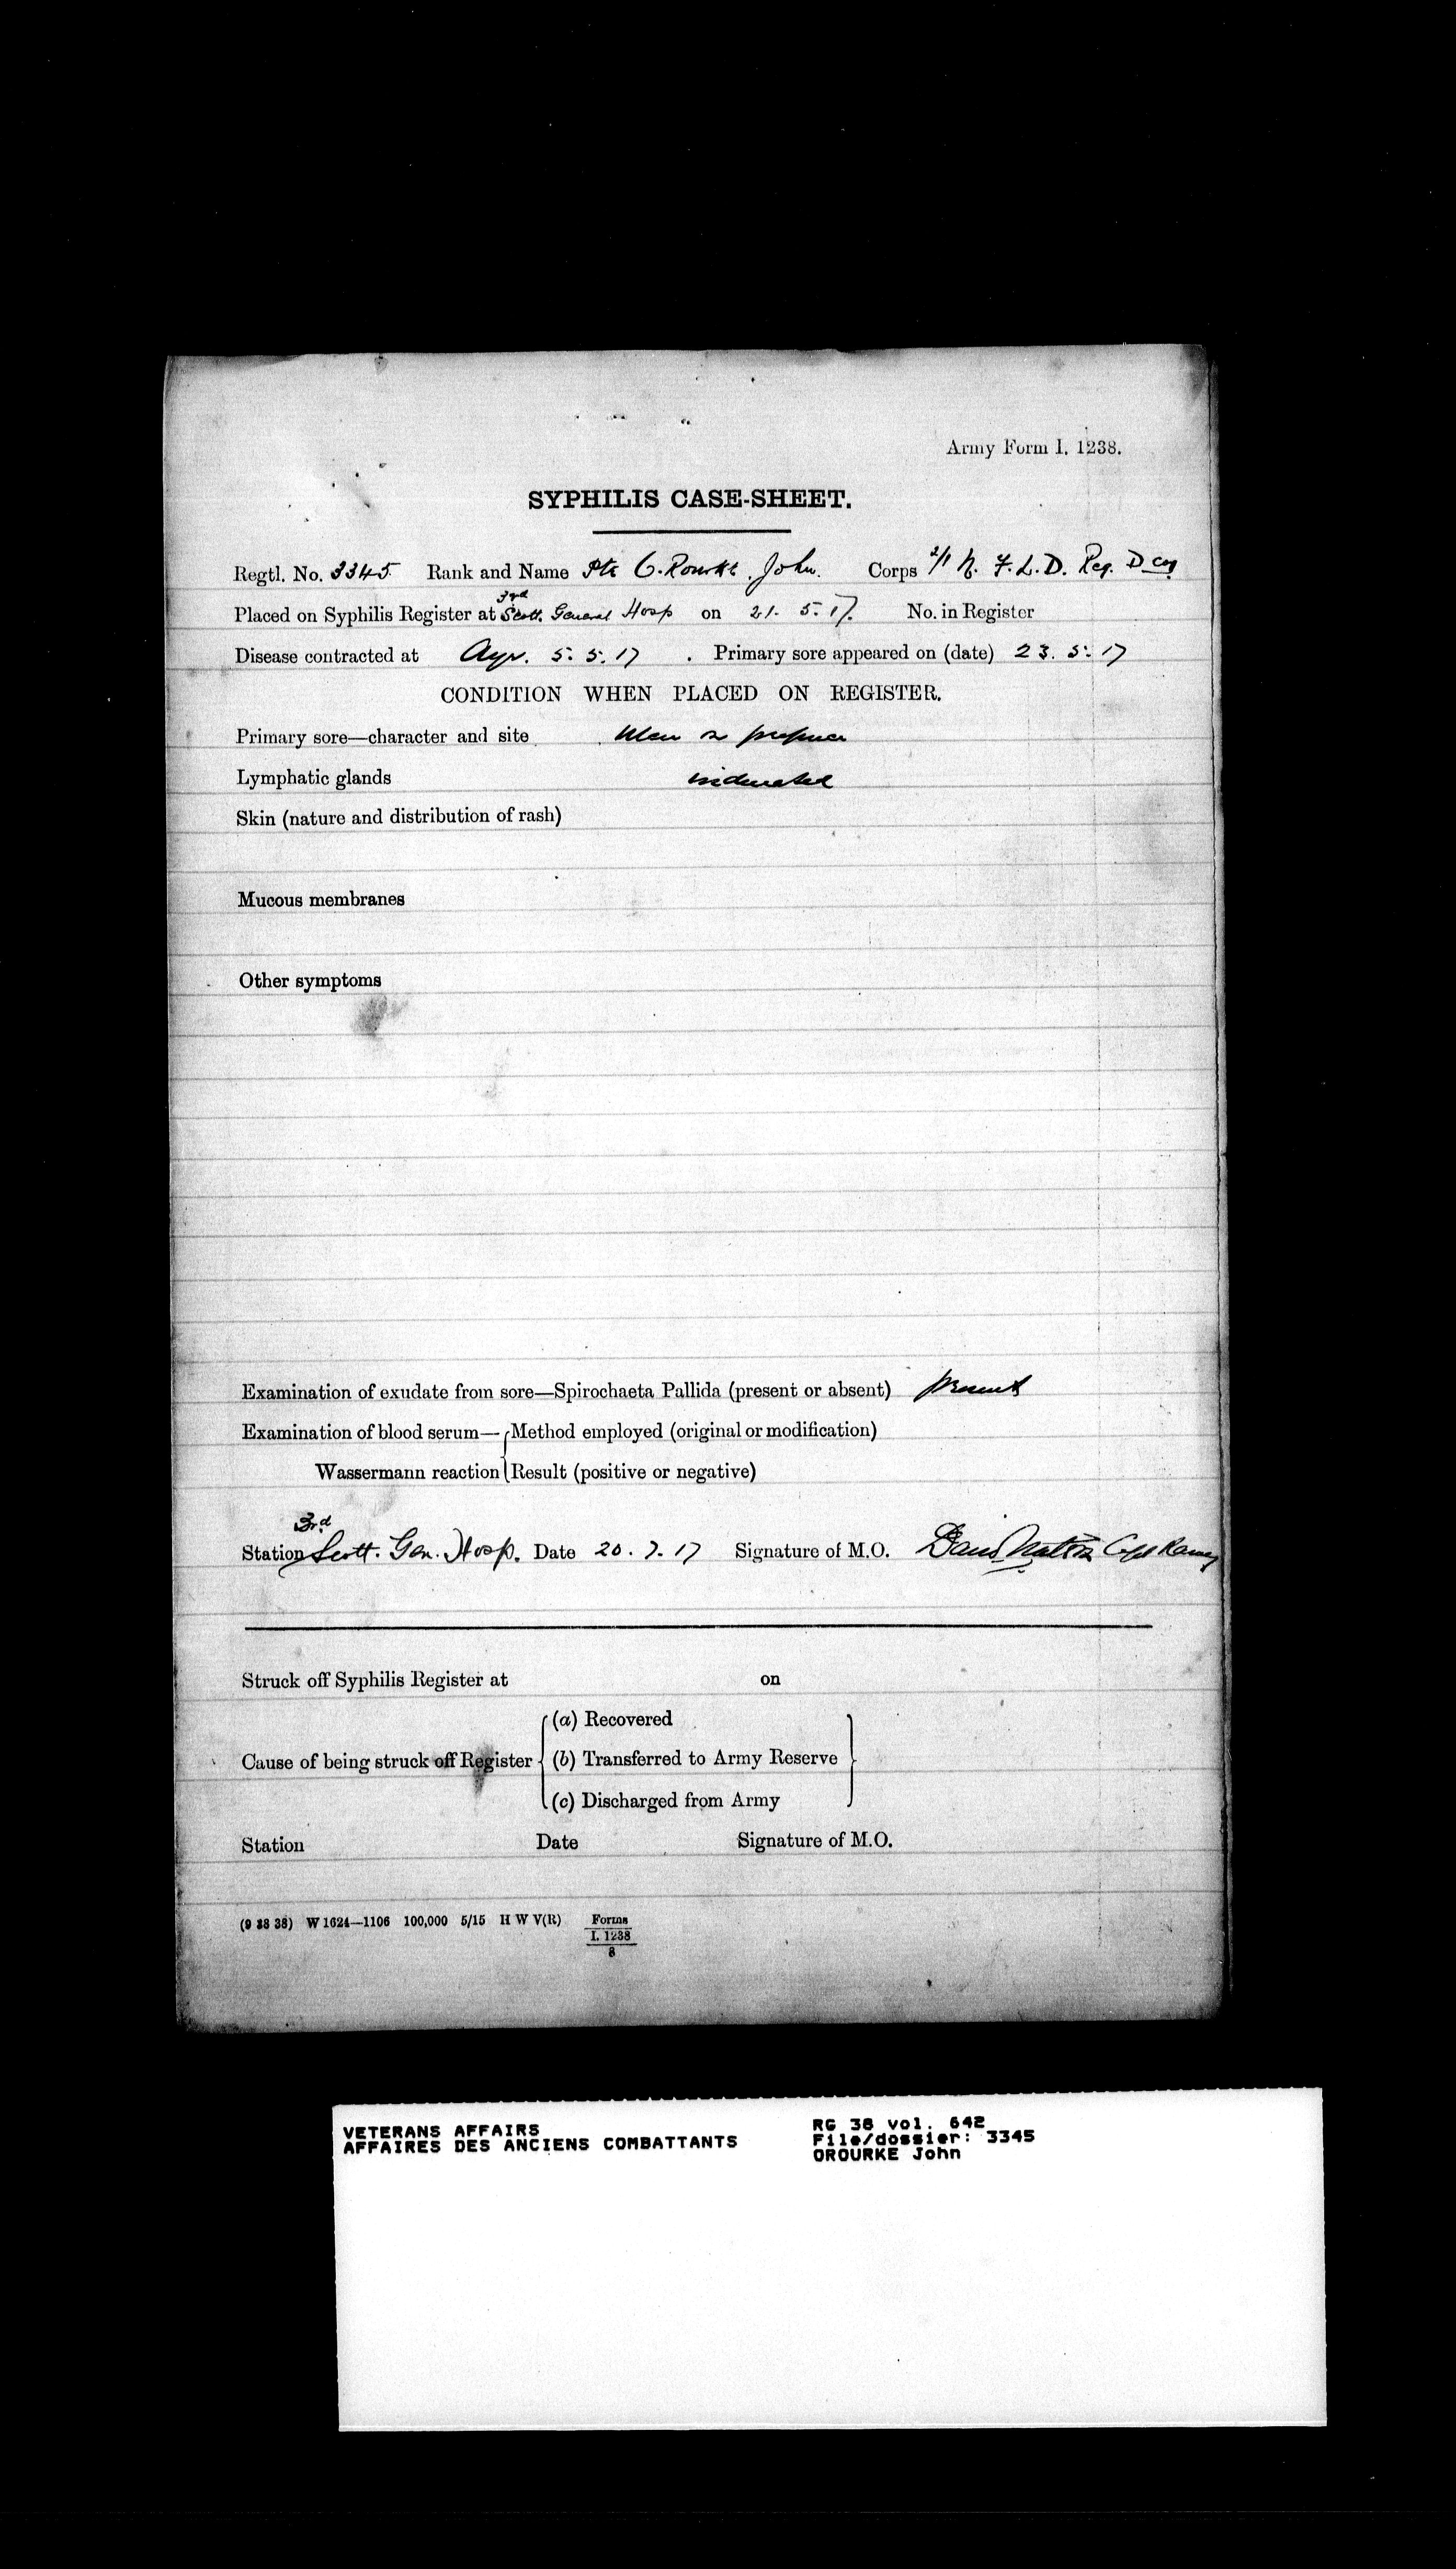 Army Form I. 1238.
SYPHILIS CASE-SHEET.
Regtl. No. 3345. Rank and Name Pte O.Rourke, John. Corps 2/1 N. F.L.D. Reg. D Coy
Placed on Syphilis Register at 3rd Scott. General Hosp on 21. 5. 17. No. in Register
Disease contracted at Ayr. 5. 5. 17 . Primary sore appeared on (date) 23. 5. 17
CONDITION WHEN PLACED ON REGISTER.
Primary sore—character and site Ulcer on prepuce
Lymphatic glands indurated
Skin (nature and distribution of rash)
Mucous membranes
Other symptoms
Examination of exudate from sore—Spirochaeta Pallida (present or absent) present
Examination of blood serum— Method employed (original or modification)
Wassermann reaction Result (positive or negative)
Station 3rd Scott. Gen. Hosp. Date 20. 7. 17 Signature of M.O. Capt Ramc
Struck off Syphilis Register at on
(a) Recovered
Cause of being struck off Register (b) Transferred to Army Reserve
(c) Discharged from Army
Station Date Signature of M.O.
(9 38 38) W 1624—1106 100,000 5/15 H W V(R) Forms
I. 1238
8
VETERANS AFFAIRS RG 38 vol. 642
AFFAIRES DES ANCIENS COMBATTANTS File/dossier: 3345
OROURKE John